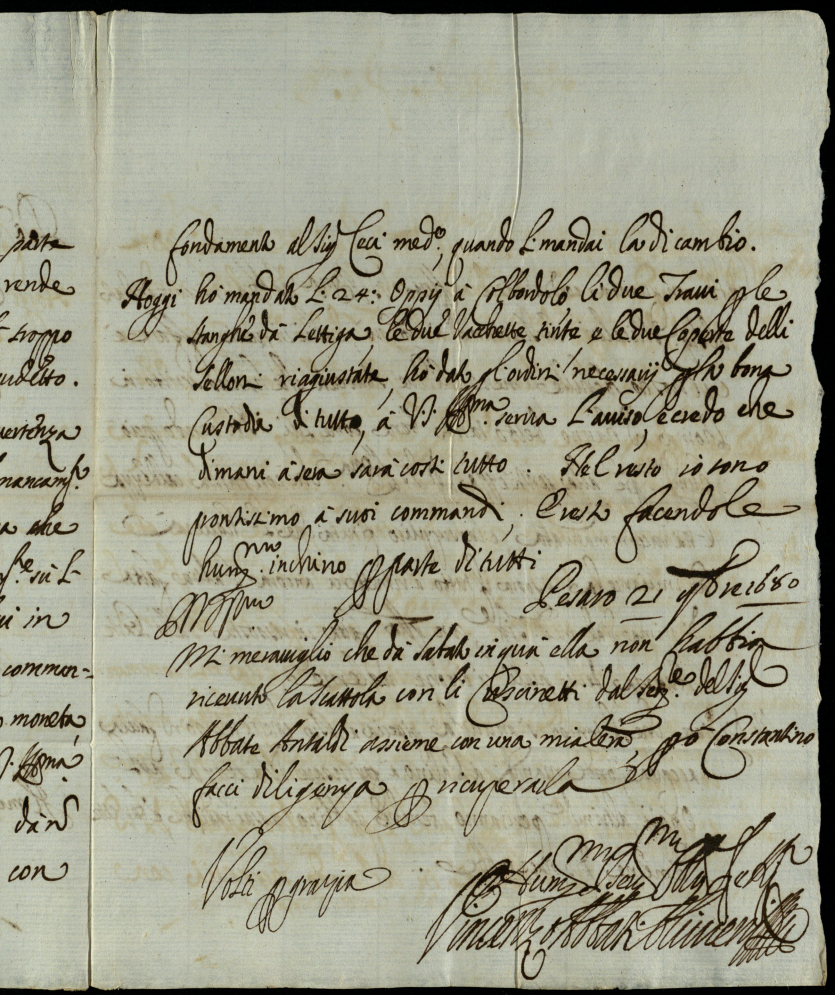 parte
rende
troppo
mancam.
che
su L
in
commen-
moneta
V.S. Illma
con
fondamenti al Sig Ceci med.o, quando L mandai la di cambio.
Hoggi hò mandati L: 24: Oppij à Colbordolo li due Travi p le
stanghe da Lettiga, le due Vacchette tinte e le due Coperte delli
Sellori riagiustate, hò dati gl'ordini necessarij p la bona
Custodia di tutto, à V.S. Illma serva L'aviso, e credo che
dimani à sera sarà costì tutto. Nel resto io sono
prontissimo à suoi commandi, e resti facendole
hum.mo inchino p parte di tutti
Pesaro 21 9bre 1680
Mi meraviglio che da Sabati in quà ella non habbia
ricevuti la scattola con li Coscinetti dal Ser.re del Sig
Abbate Antaldi assieme con una mia lera, però Constantino
facci diligenza p ricuperarla
Volti p grazia
Hum.mo Ser
Vincenzo Abbati Olivieri